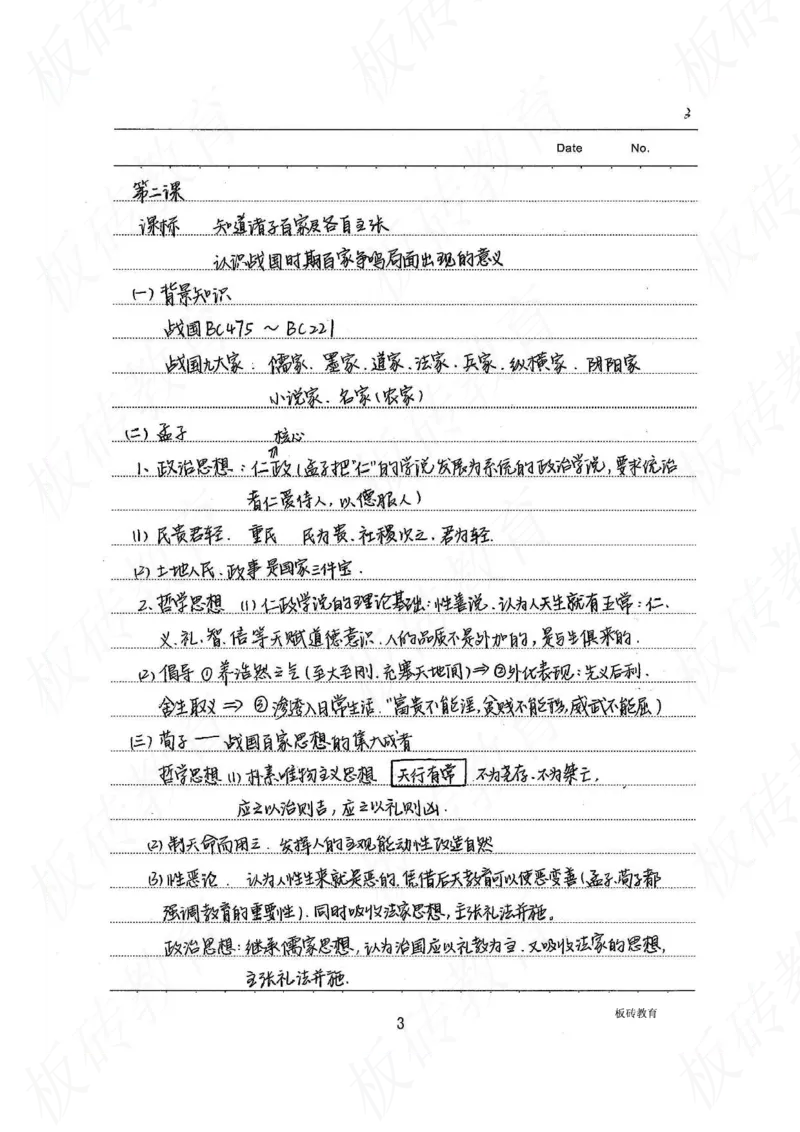 3
Date No.
第二课
课标 知道诸子百家及各自主张
认识战国时期百家争鸣局面出现的意义
(一)背景知识
战国BC475 ~ BC221
战国九大家: 儒家、墨家、道家、法家、兵家、纵横家、阴阳家
小说家、名家(农家)
(二)孟子 核心
1、政治思想:仁政(孟子把"仁"的学说发展为系统的政治学说,要求统治
者仁爱待人,以德服人)
(1)民贵君轻. 重民 民为贵、社稷次之、君为轻.
(2)土地人民、政事是国家三件宝.
2、哲学思想 (1)仁政学说的理论基础:性善说、认为人天生就有五常:仁、
义、礼、智、信等天赋道德意识、人的品质不是外加的,是与生俱来的.
(2)倡导 ①养浩然之气(至大至刚、充塞天地间)⇒②外化表现:先义后利.
舍生取义 ⇒ ③渗透入日常生活."富贵不能淫,贫贱不能移,威武不能屈)
(三)荀子 — 战国百家思想的集大成者
哲学思想 (1)朴素唯物主义思想 天行有常 不为尧存、不为桀亡,
应之以治则吉,应之以礼则凶.
(2)制天命而用之. 发挥人的主观能动性改造自然
(3)性恶论. 认为人性生来就是恶的.凭借后天教育可以使恶变善(孟子、荀子都
强调教育的重要性).同时吸收法家思想,主张礼法并施。
政治思想:继承儒家思想,认为治国应以礼教为主.又吸收法家的思想,
主张礼法并施.
板砖教育
3